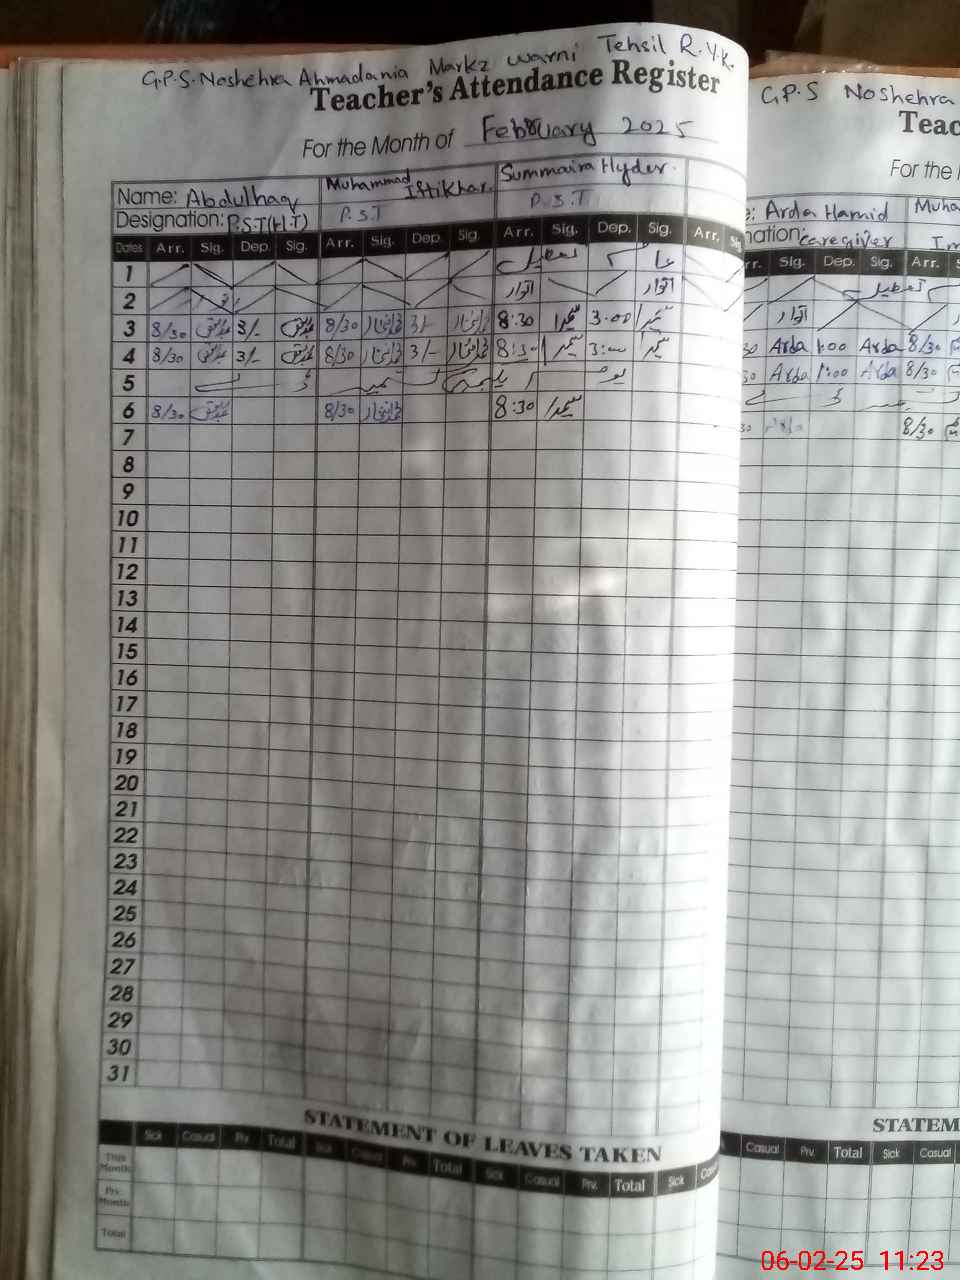 G.P.S. Noshehra Ahmadania Markz warni Tehsil R.Y.K.
Teacher's Attendance Register
For the Month of February 2025
Name: Abdulhaq Muhammad Iftikhar Summaira Hyder.
Designation: P.S.T(H.T) P.S.T P.S.T
Dates Arr. Sig. Dep. Sig. Arr. Sig. Dep. Sig. Arr. Sig. Dep. Sig. Arr. Sig
1 تعطیل عام
2 اتوار اتوار
3 8/30 3/- 8/30 3/- 8:30 سمیرا 3:00 سمیرا
4 8/30 3/- 8/30 3/- 8:30 سمیرا 3:00 سمیرا
5 یوم یکجہتی کشمیر ڈے
6 8/30 8/30 8:30 سمیرا
7
8
9
10
11
12
13
14
15
16
17
18
19
20
21
22
23
24
25
26
27
28
29
30
31
STATEMENT OF LEAVES TAKEN
Sick Casual Prv. Total Sick Casual Prv. Total Sick Casual Prv. Total Sick
This Month
Prv. Month
Total
G.P.S Noshehra
Teac
For the
: Arda Hamid Muha
nation: caregiver Im
rr. Sig. Dep. Sig. Arr. S
تعطیل
اتوار
30 Arda 1:00 Arda 8/30
30 Arda 1:00 Arda 8/30
30 8/30
STATEM
Casual Prv. Total Sick Casual
06-02-25 11:23